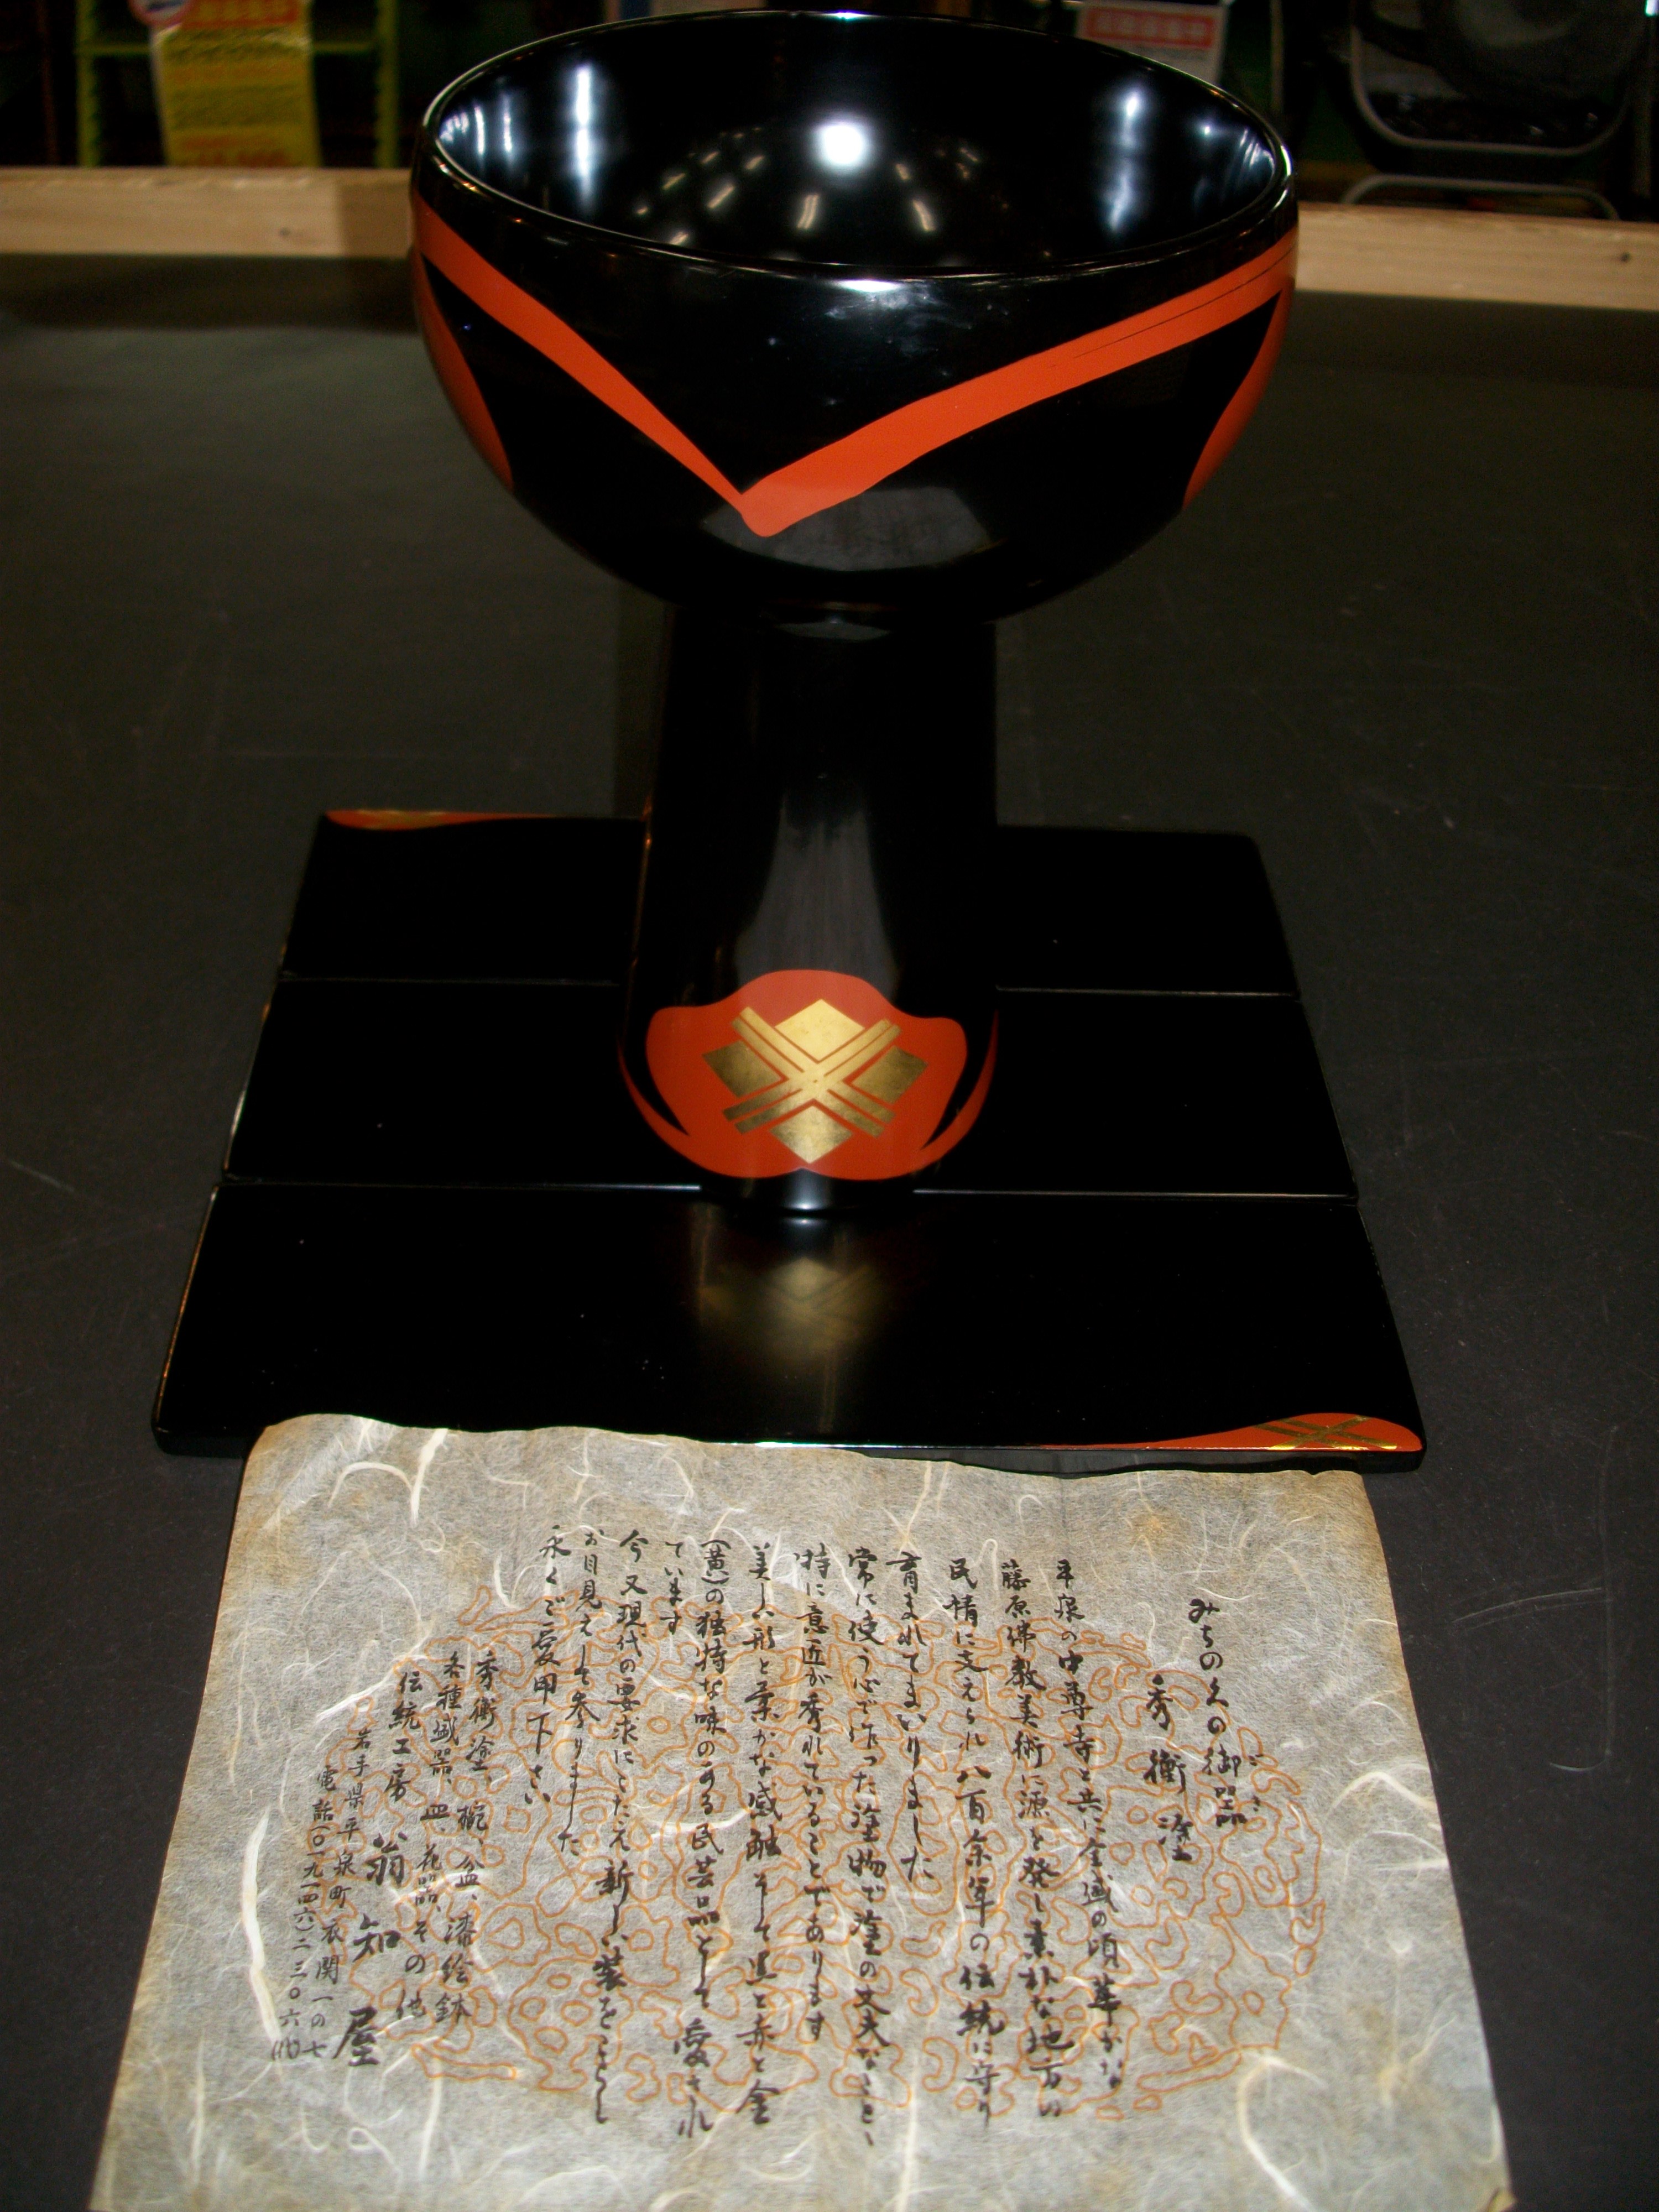 みちのくの御器
秀衡塗
平泉の中尊寺と共に全盛の頃華かな
藤原佛教美術に源を発し素朴な地方の
民情に支えられ八百余年の伝統に守り
育まれてまいりました
常に使う心で作った塗物で塗の丈夫なこと、
特に意匠が秀れていることであります
美しい形と柔かな感触そして黒と赤と金
(黄)の独特な味のある民芸品として愛され
ています
今又現代の要求にこたえ新しい装をこらし
お目見えして参りました
永くご愛用下さい
秀衡塗、椀、盆、漆絵鉢
各種盛器、皿、花器、その他
伝統工房 翁知屋
岩手県平泉町衣関一の七
電話(〇一九一四六)二三〇六